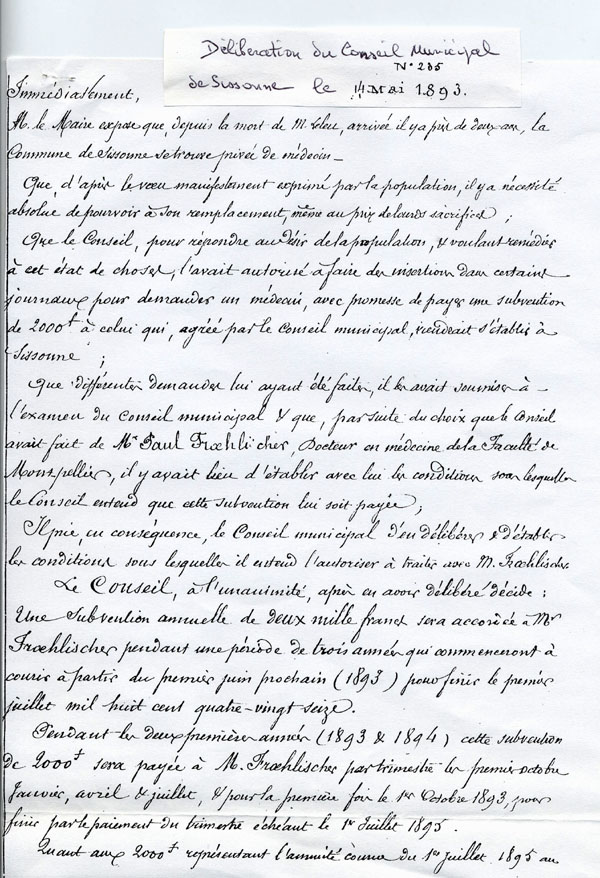 Délibération du Conseil Municipal
N° 285
de Sissonne le 14 Mai 1893.
Immédiatement,
M. le Maire expose que, depuis la mort de M. Leleu, arrivée il y a près de deux ans, la
Commune de Sissonne se trouve privée de médecin _
Que, d'après le vœu manifestement exprimé par la population, il y a nécessité
absolue de pourvoir à son remplacement, même au prix de lourds sacrifices ;
Que le Conseil, pour répondre au désir de la population, & voulant remédier
à cet état de choses, l'avait autorisé à faire des insertions dans certains
journaux pour demander un médecin, avec promesse de payer une subvention
de 2000f à celui qui, agréé par le Conseil municipal, viendrait s'établir à
Sissonne ;
Que différentes demandes lui ayant été faites, il les avait soumises à _
l'examen du Conseil municipal & que, par suite du choix que le Conseil
avait fait de Mr Paul Frœhlischer, Docteur en médecine de la Faculté de
Montpellier, il y avait lieu d'établir avec lui les conditions sous lesquelles
le Conseil entend que cette subvention lui soit payée ;
Il prie, en conséquence, le Conseil municipal d'en délibérer & d'établir
les conditions sous lesquelles il entend l'autoriser à traiter avec M. Frœhlischer.
Le Conseil, à l'unanimité, après en avoir délibéré décide :
Une subvention annuelle de deux mille francs sera accordée à Mr
Frœhlischer pendant une période de trois années qui commenceront à
courir à partir du premier juin prochain (1893) pour finir le premier
juillet mil huit cent quatre-vingt seize.
Pendant les deux premières années (1893 & 1894) cette subvention
de 2000f sera payée à M. Frœhlischer par trimestre les premier octobre
Janvier, avril & juillet, & pour la première fois le 1er Octobre 1893, pour
finir par le paiement du trimestre échéant le 1er Juillet 1895.
Quant aux 2000f représentant l'annuité courue du 1er juillet 1895 au